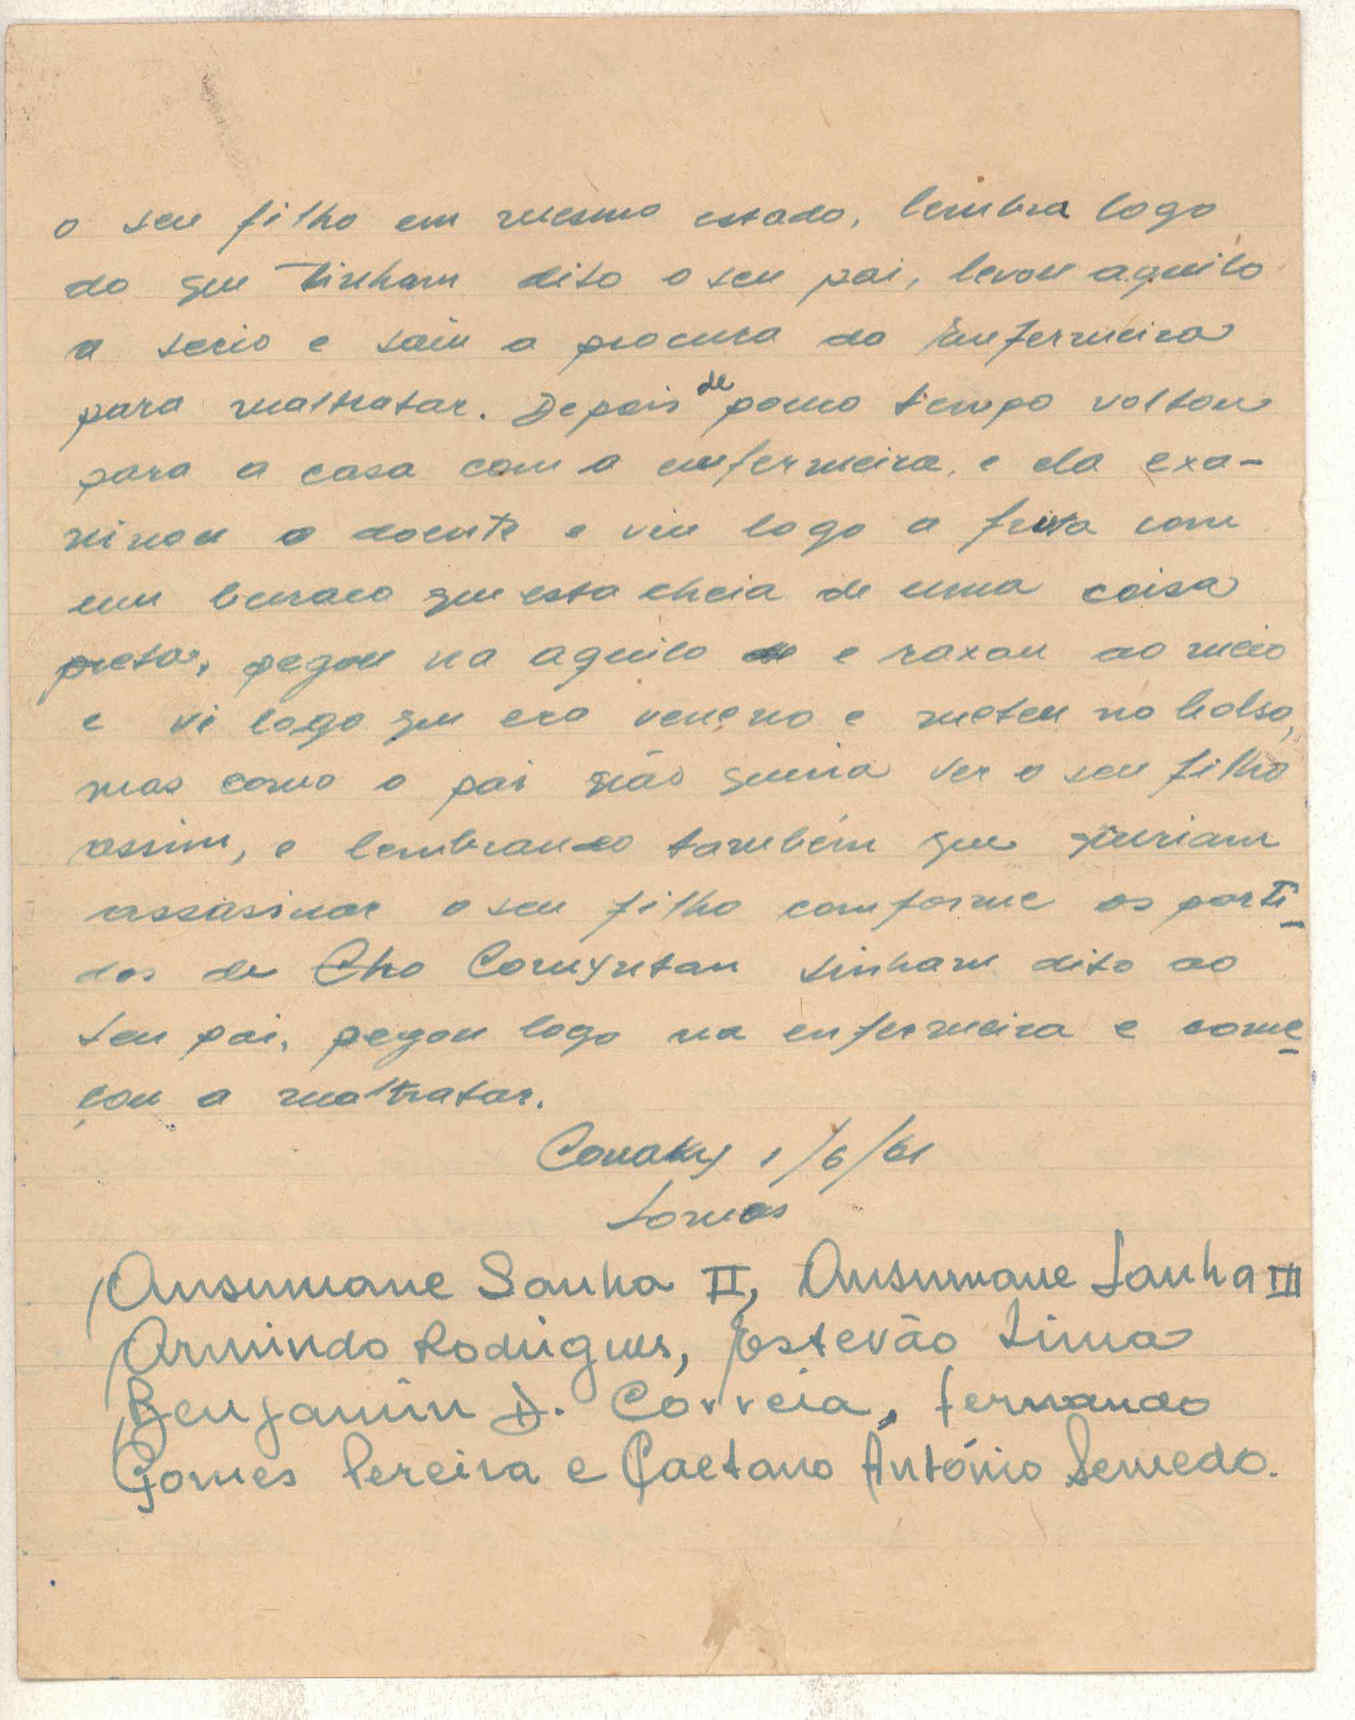 o seu filho em mesmo estado, lembra logo
do que tinham dito o seu pai, levou aquilo
a serio e saiu a procura da enfermeira
para maltratar. Depois de pouco tempo voltou
para a casa com a enfermeira, e ela exa-
minou o doente e viu logo a fruta com
um buraco que esta cheia de uma coisa
preta, pegou na aquilo e raxou ao meio
e vi logo que era veneno e meteu no bolso,
mas como o pai não queria ver o seu filho
assim, e lembrando também que queriam
assasinar o seu filho comforme os parti-
dos de Cho tinham dito ao
seu pai, pegou logo na enfermeira e come-
çou a maltratar.
Conakry 1/6/61
Somos
Ansumane Sanha II, Ansumane Sanha III
Armindo Rodrigues, Estevão Lima
Benjamin D. Correia, Fernando
Gomes Pereira e Caetano António Semedo.